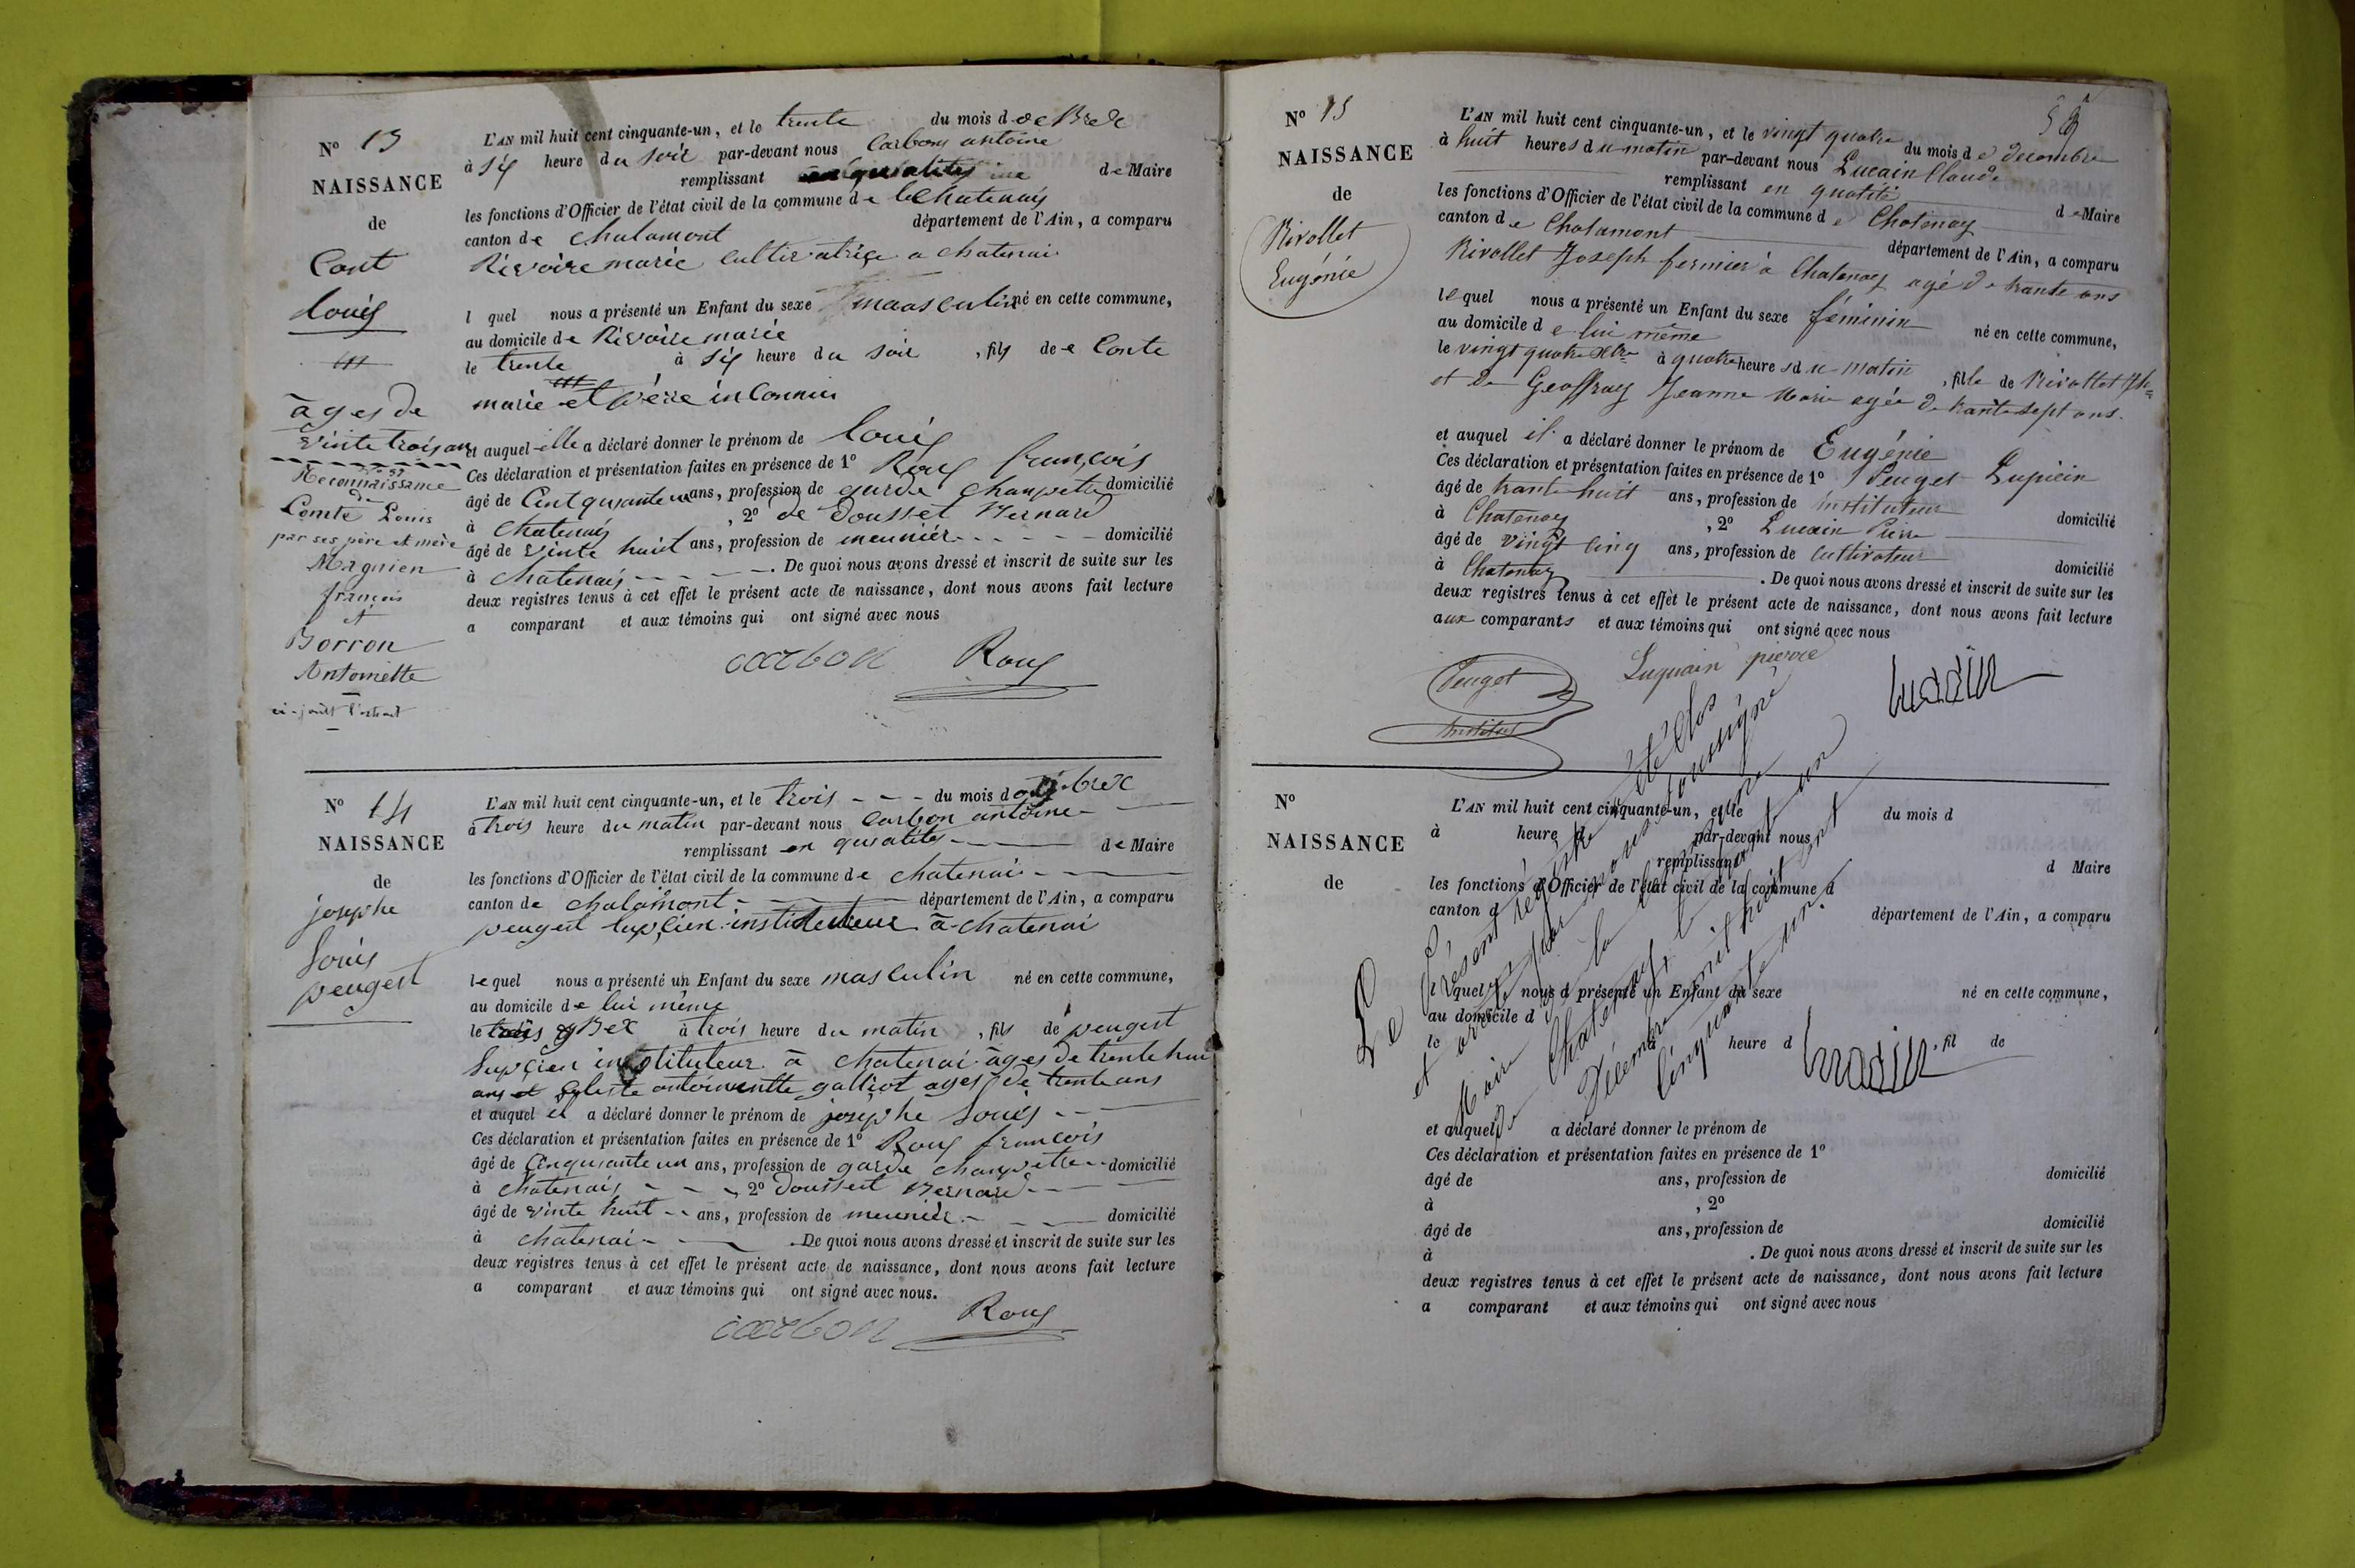 N° 13
NAISSANCE
de
Cont
louis
âges de
vinte trois ans
Reconnaissance
de
Comte Louis
par ses père et mère
Magnien
françois
et
Borron
Antoinette
ci-joint l'extrait
L'AN mil huit cent cinquante-un, et le trente du mois d 8Brex
à siy heure du soir par-devant nous Carbon antoine
remplissant de Maire
les fonctions d'Officier de l'état civil de la commune de Chatenais
canton de Chalamont département de l'Ain, a comparu
Rivoire marie cultivatrice a chatenai
l quel nous a présenté un Enfant du sexe maasculin né en cette commune,
au domicile de Rivoire marie
le trente à siy heure du soir , fils de e Conte
marie et père inconnu
et auquel elle a déclaré donner le prénom de louis
Ces déclaration et présentation faites en présence de 1° Roux francois
âgé de Cintquante un ans, profession de garde Champette domicilié
à Chatenais , 2° de Dousset Bernard
âgé de vinte huit ans, profession de meunier domicilié
à Chatenais . De quoi nous avons dressé et inscrit de suite sur les
deux registres tenus à cet effet le présent acte de naissance, dont nous avons fait lecture
a comparant et aux témoins qui ont signé avec nous
carbon Roux
N° 14
NAISSANCE
de
josephe
Louis
peugest
L'AN mil huit cent cinquante-un, et le trois du mois d 9brex
à trois heure du matin par-devant nous Carbon antoine
remplissant en qusatités de Maire
les fonctions d'Officier de l'état civil de la commune de chatenai
canton de chalamont département de l'Ain, a comparu
peugest lupcien instituteur à chatenai
lequel nous a présenté un Enfant du sexe masculin né en cette commune,
au domicile de lui même
le trois 9Bex à trois heure du matin , fils de peugest
lupcien instituteur à chatenai âges de trente hui
ans et antoinentte galliot ages de trente ans
et auquel il a déclaré donner le prénom de josephe Louis
Ces déclaration et présentation faites en présence de 1° Roux francois
âgé de Cinqusante un ans, profession de garde champetre domicilié
à chatenais , 2° Doussert Bernard
âgé de vinte huit ans, profession de meunier domicilié
à chatenai . De quoi nous avons dressé et inscrit de suite sur les
deux registres tenus à cet effet le présent acte de naissance, dont nous avons fait lecture
a comparant et aux témoins qui ont signé avec nous.
carbon Roux
N° 15
NAISSANCE
de
Rivollet
Eugénie
L'AN mil huit cent cinquante-un, et le vingt quatre du mois de decembre
à huit heures du matin par-devant nous Lucain Claude
remplissant en qualité de Maire
les fonctions d'Officier de l'état civil de la commune de Chatenay
canton de Chalamont département de l'Ain, a comparu
Rivollet Joseph fermier à Chatenay agé de trante ans
lequel nous a présenté un Enfant du sexe féminin né en cette commune,
au domicile de lui même
le vingt quatre Xbre à quatre heures du matin , fille de Rivollet Jph
et de Geoffray Jeanne Marie agée de trante sept ans.
et auquel il a déclaré donner le prénom de Eugénie
Ces déclaration et présentation faites en présence de 1° Peuget Lupicin
âgé de trante huit ans, profession de instituteur domicilié
à Chatenay , 2° Lucain Pierre
âgé de vingt cinq ans, profession de cultivateur domicilié
à Chatenay . De quoi nous avons dressé et inscrit de suite sur les
deux registres tenus à cet effet le présent acte de naissance, dont nous avons fait lecture
aux comparants et aux témoins qui ont signé avec nous
Peuget Luquain pierre
N°
NAISSANCE
de
L'AN mil huit cent cinquante-un, et le du mois d
à heure d par-devant nous
remplissant d Maire
les fonctions d'Officier de l'état civil de la commune d
canton d département de l'Ain, a comparu
l quel nous a présenté un Enfant du sexe né en cette commune,
au domicile d
le à heure d , fil de
et auquel a déclaré donner le prénom de
Ces déclaration et présentation faites en présence de 1°
âgé de ans, profession de domicilié
à , 2°
âgé de ans, profession de domicilié
à . De quoi nous avons dressé et inscrit de suite sur les
deux registres tenus à cet effet le présent acte de naissance, dont nous avons fait lecture
a comparant et aux témoins qui ont signé avec nous
Le présent registre a été clos
et arrêté par nous soussigné
Maire de la commune
de Chatenay le trente un
Décembre mil huit cent
cinquante un.